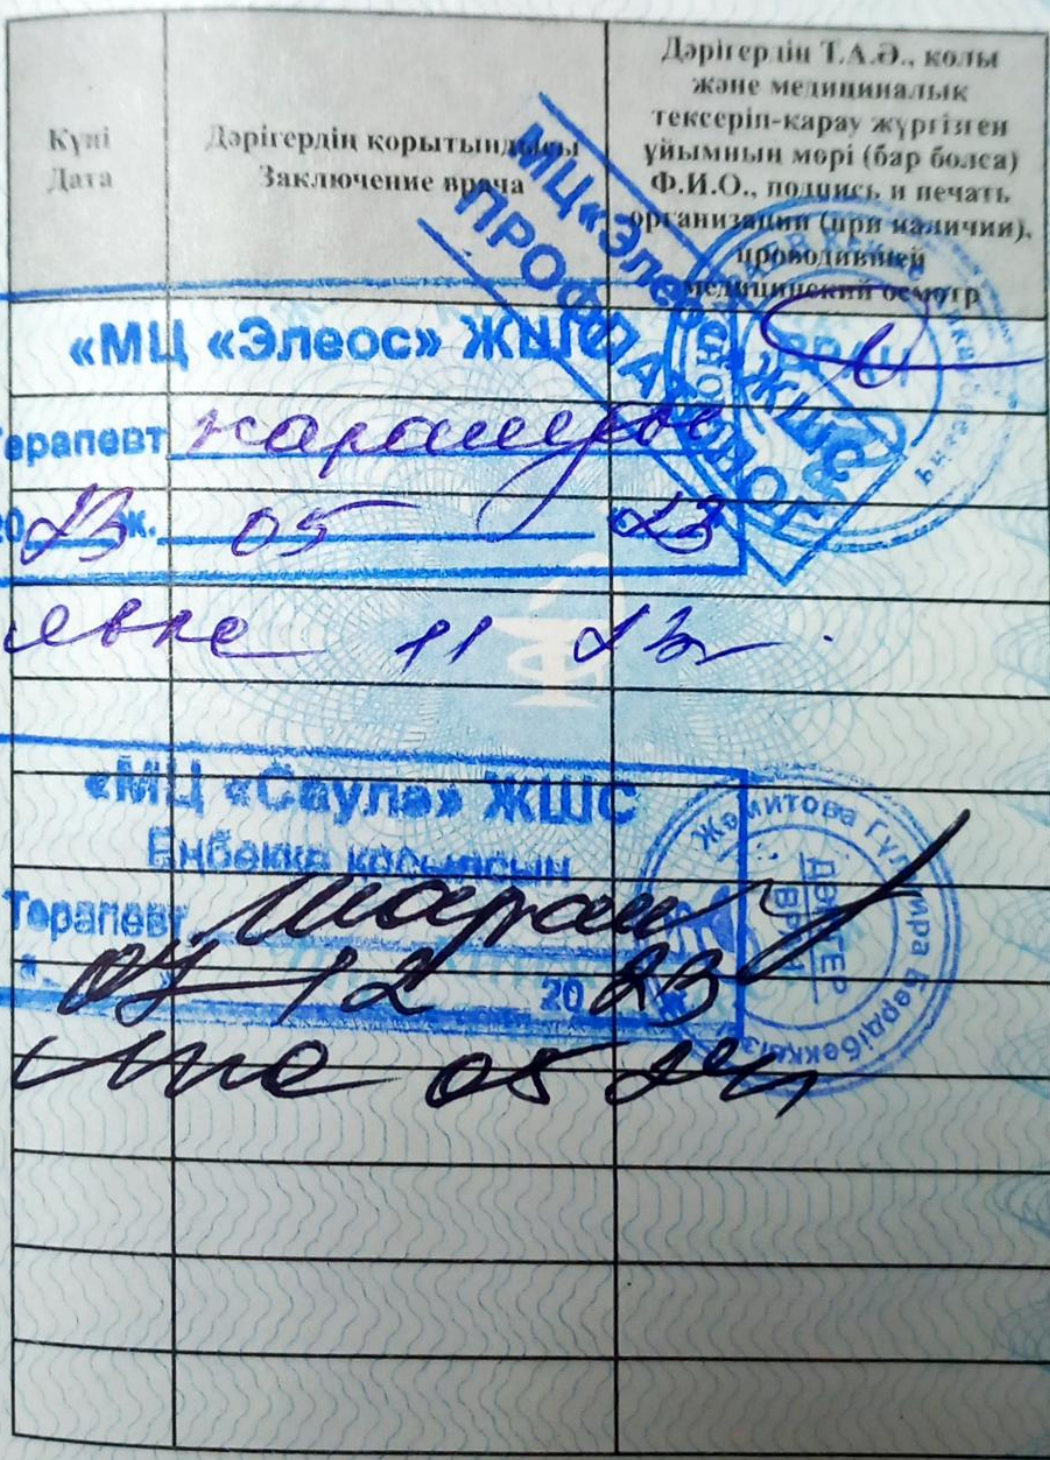 Күні
Дата
Дәрігердің қорытындысы
Заключение врача
Дәрігердің Т.А.Ә., қолы
және медициналық
тексеріп-қарау жүргізген
ұйымның мөрі (бар болса)
Ф.И.О., подпись и печать
организации (при наличии),
проводившей
медицинский осмотр
МЦ«Элеос» ЖШС
ПРОФПАТОЛОГ
ВРАЧ
«МЦ «Элеос» ЖШС
Терапевт
2023 ж. 05 23
явка 11 23
«МЦ «Саула» ЖШС
Еңбекке қосылсын
Терапевт
07 12 2023
05 24
Жәмитова Гүлмира Бердібекқызы
ДӘРІГЕР
ВРАЧ